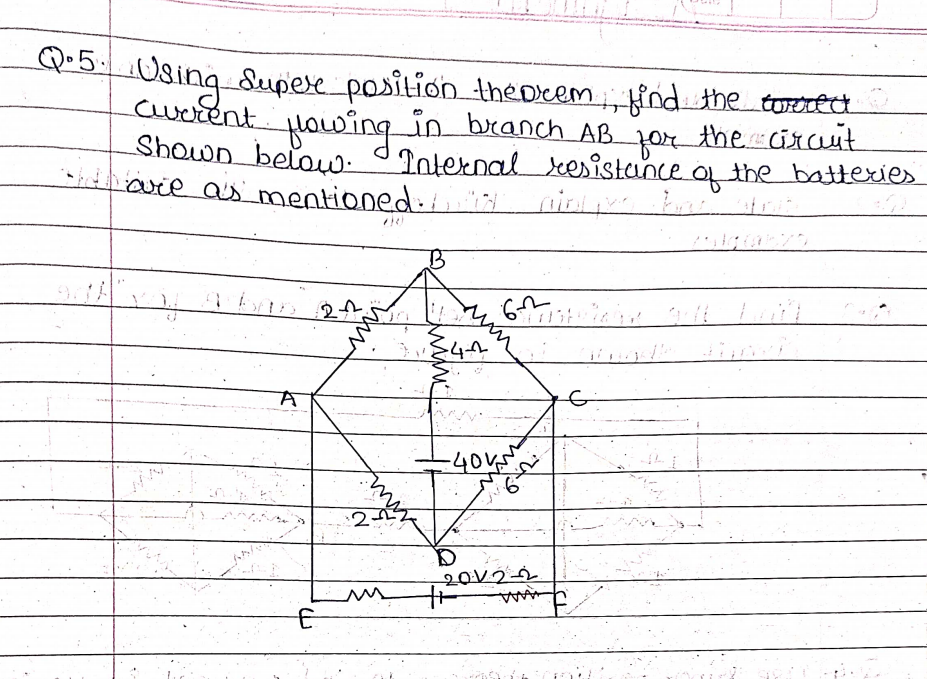 Q.5. Using Supere position theorem, find the correct
current flowing in branch AB for the circuit
Shown below. Internal resistance of the batteries
are as mentioned.
B
2Ω 6Ω
4Ω
A C
40V
6Ω
2Ω
D
20V 2Ω
E F